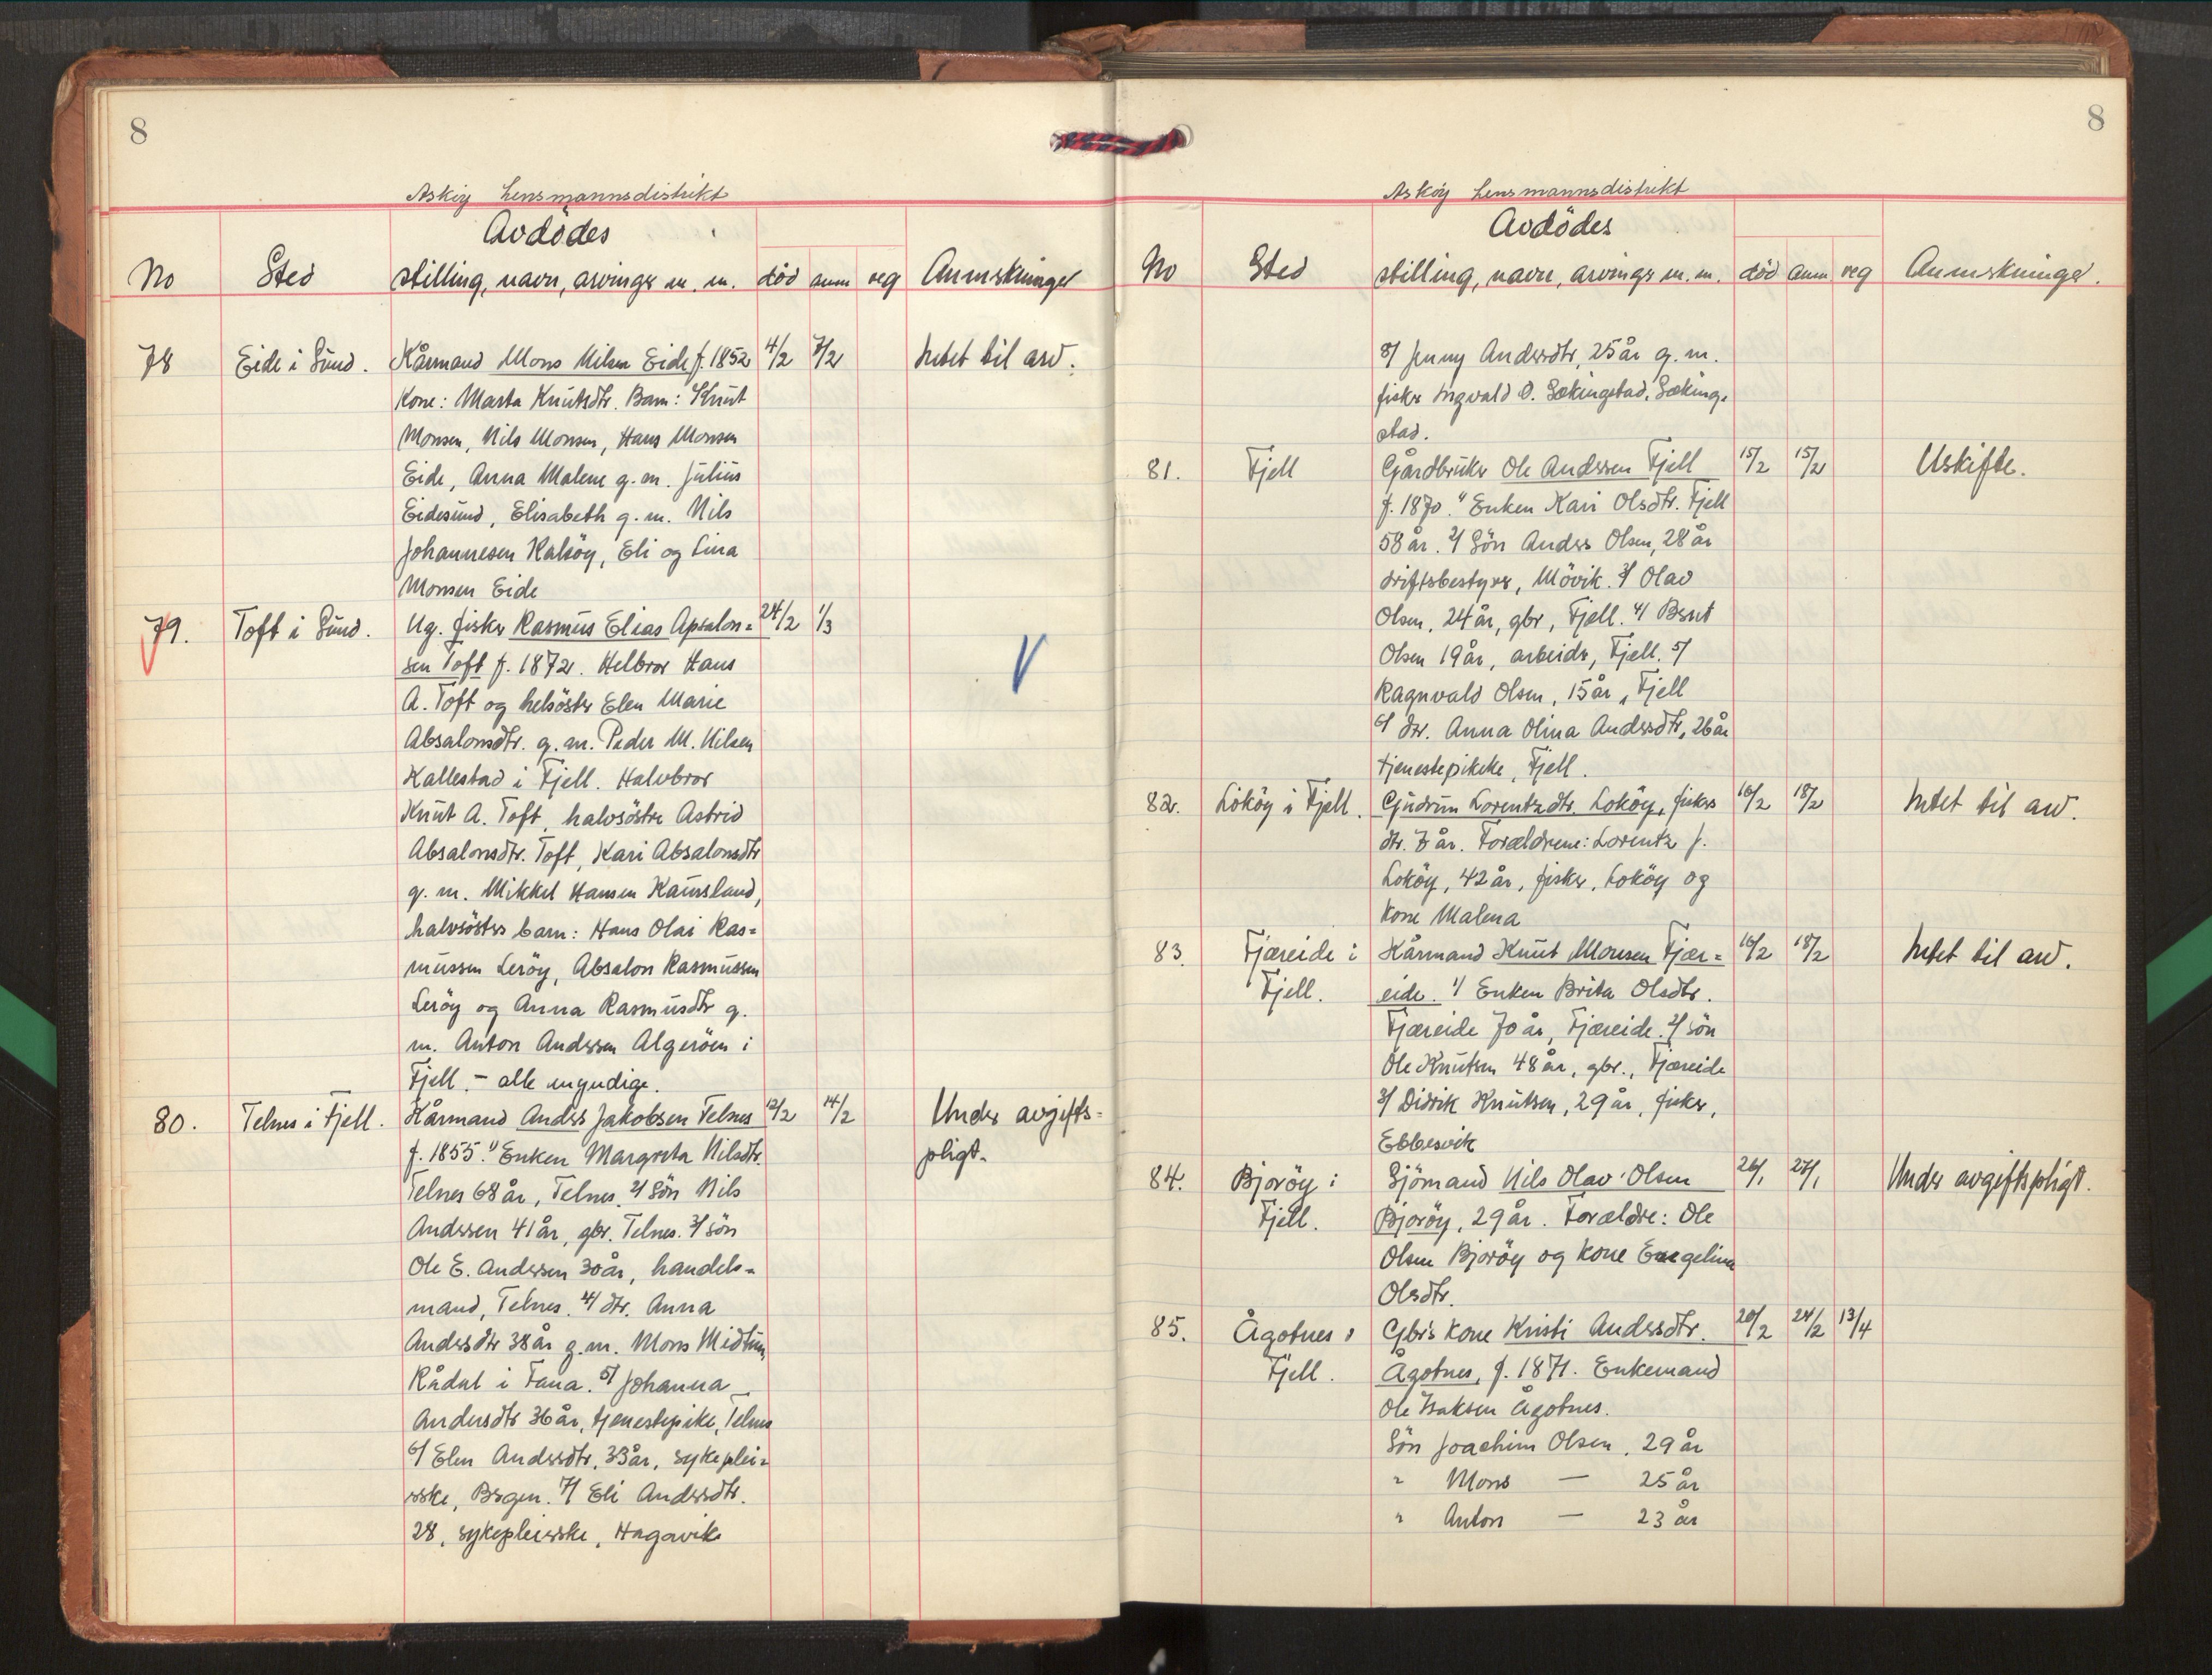 8
Askøy Lensmannsdistrikt
Avdödes
No Sted stilling, navn, arvinger m. m. död anm reg Anmerkninger
78 Eide i Sund. Kårmand Mons Nilsen Eide f. 1852 4/2 7/2 Intet til arv.
Kone: Marta Knutsdtr. Barn: Knut
Monsen, Nils Monsen, Hans Monsen
Eide, Anna Malene g. m. Julius
Eidesund, Elisabeth g. m. Nils
Johannesen Kalsöy, Eli og Lina
Monsen Eide
79. Toft i Sund. Ug. fisker Rasmus Elias Apsalon= 24/2 1/3
sen Toft f. 1872. Helbror Hans
A. Toft og helsöster Elen Marie
Absalonsdtr. g. m. Peder M. Nilsen
Kallestad i Fjell. Halvbror
Knut A. Toft, halvsöstre Astrid
Absalonsdtr. Toft, Kari Absalonsdtr
g. m. Mikkel Hansen Kausland,
halvsösters barn: Hans Olai Ras=
mussen Leröy, Absalon Rasmussen
Leröy og Anna Rasmusdtr g.
m. Anton Andersen Algeröen i
Fjell. – alle myndige.
80. Telnes i Fjell. Kårmand Anders Jakobsen Telnes 12/2 14/2 Under avgifts=
f. 1855. 1/ Enken Margreta Nilsdtr. pligt.
Telnes 68 år, Telnes. 2/ Sön Nils
Andersen 41 år, gbr. Telnes. 3/ sön
Ole E. Andersen 30 år, handels=
mand, Telnes. 4/ dtr. Anna
Andersdtr 38 år g. m. Mons Midtun,
Rådal i Fana. 5/ Johanna
Andersdtr 36 år, tjenestepike, Telnes
6/ Elen Andersdtr, 33 år, sykeplei=
erske, Bergen. 7/ Eli Andersdtr.
28, sykepleierske, Hagavik
8
Askøy Lensmannsdistrikt
Avdödes
No Sted stilling, navn, arvinger m. m. död anm. reg Anmerkninger.
8/ Jenny Andersdtr, 25 år g. m.
fisker Ingvald O. Sekingstad, Seking=
stad.
81. Fjell Gårdbruker Ole Andersen Fjell 15/2 15/2 Uskifte.
f. 1870. 1/ Enken Kari Olsdtr. Fjell
58 år. 2/ Sön Anders Olsen, 28 år
driftsbestyrer, Mövik. 3/ Olav
Olsen, 24 år, gbr, Fjell. 4/ Bernt
Olsen 19 år, arbeider, Fjell. 5/
Ragnvald Olsen, 15 år, Fjell
6/ dtr. Anna Olina Andersdtr, 26 år
tjenestepikeke, Fjell.
82. Loköy i Fjell. Gudrun Lorentzdtr. Loköy, fiskers 16/2 18/2 Intet til arv.
dtr. 7 år. Forældrene: Lorentz J.
Loköy, 42 år, fisker, Loköy og
kone Malena
83. Fjæreide i Kårmand Knut Monsen Fjær= 16/2 18/2 Intet til arv.
Fjell. eide. 1/ Enken Brita Olsdtr.
Fjæreide 70 år, Fjæreide. 2/ sön
Ole Knutsen 48 år, gbr., Fjæreide
3/ Didrik Knutsen, 29 år, fisker,
Ebbesvik
84. Bjoröy i Sjömand Nils Olav Olsen 26/1 27/1 Under avgiftspligt.
Fjell. Bjoröy, 29 år. Forældre: Ole
Olsen Bjoröy og kone Engeline
Olsdtr.
85. Ågotnes i Gbr's kone Kristi Andersdtr. 20/2 24/2 13/4
Fjell. Ågotnes, f. 1871. Enkemand
Ole Isaksen Ågotnes.
Sön Joachim Olsen, 29 år
" Mons — 25 år
" Anton — 23 år